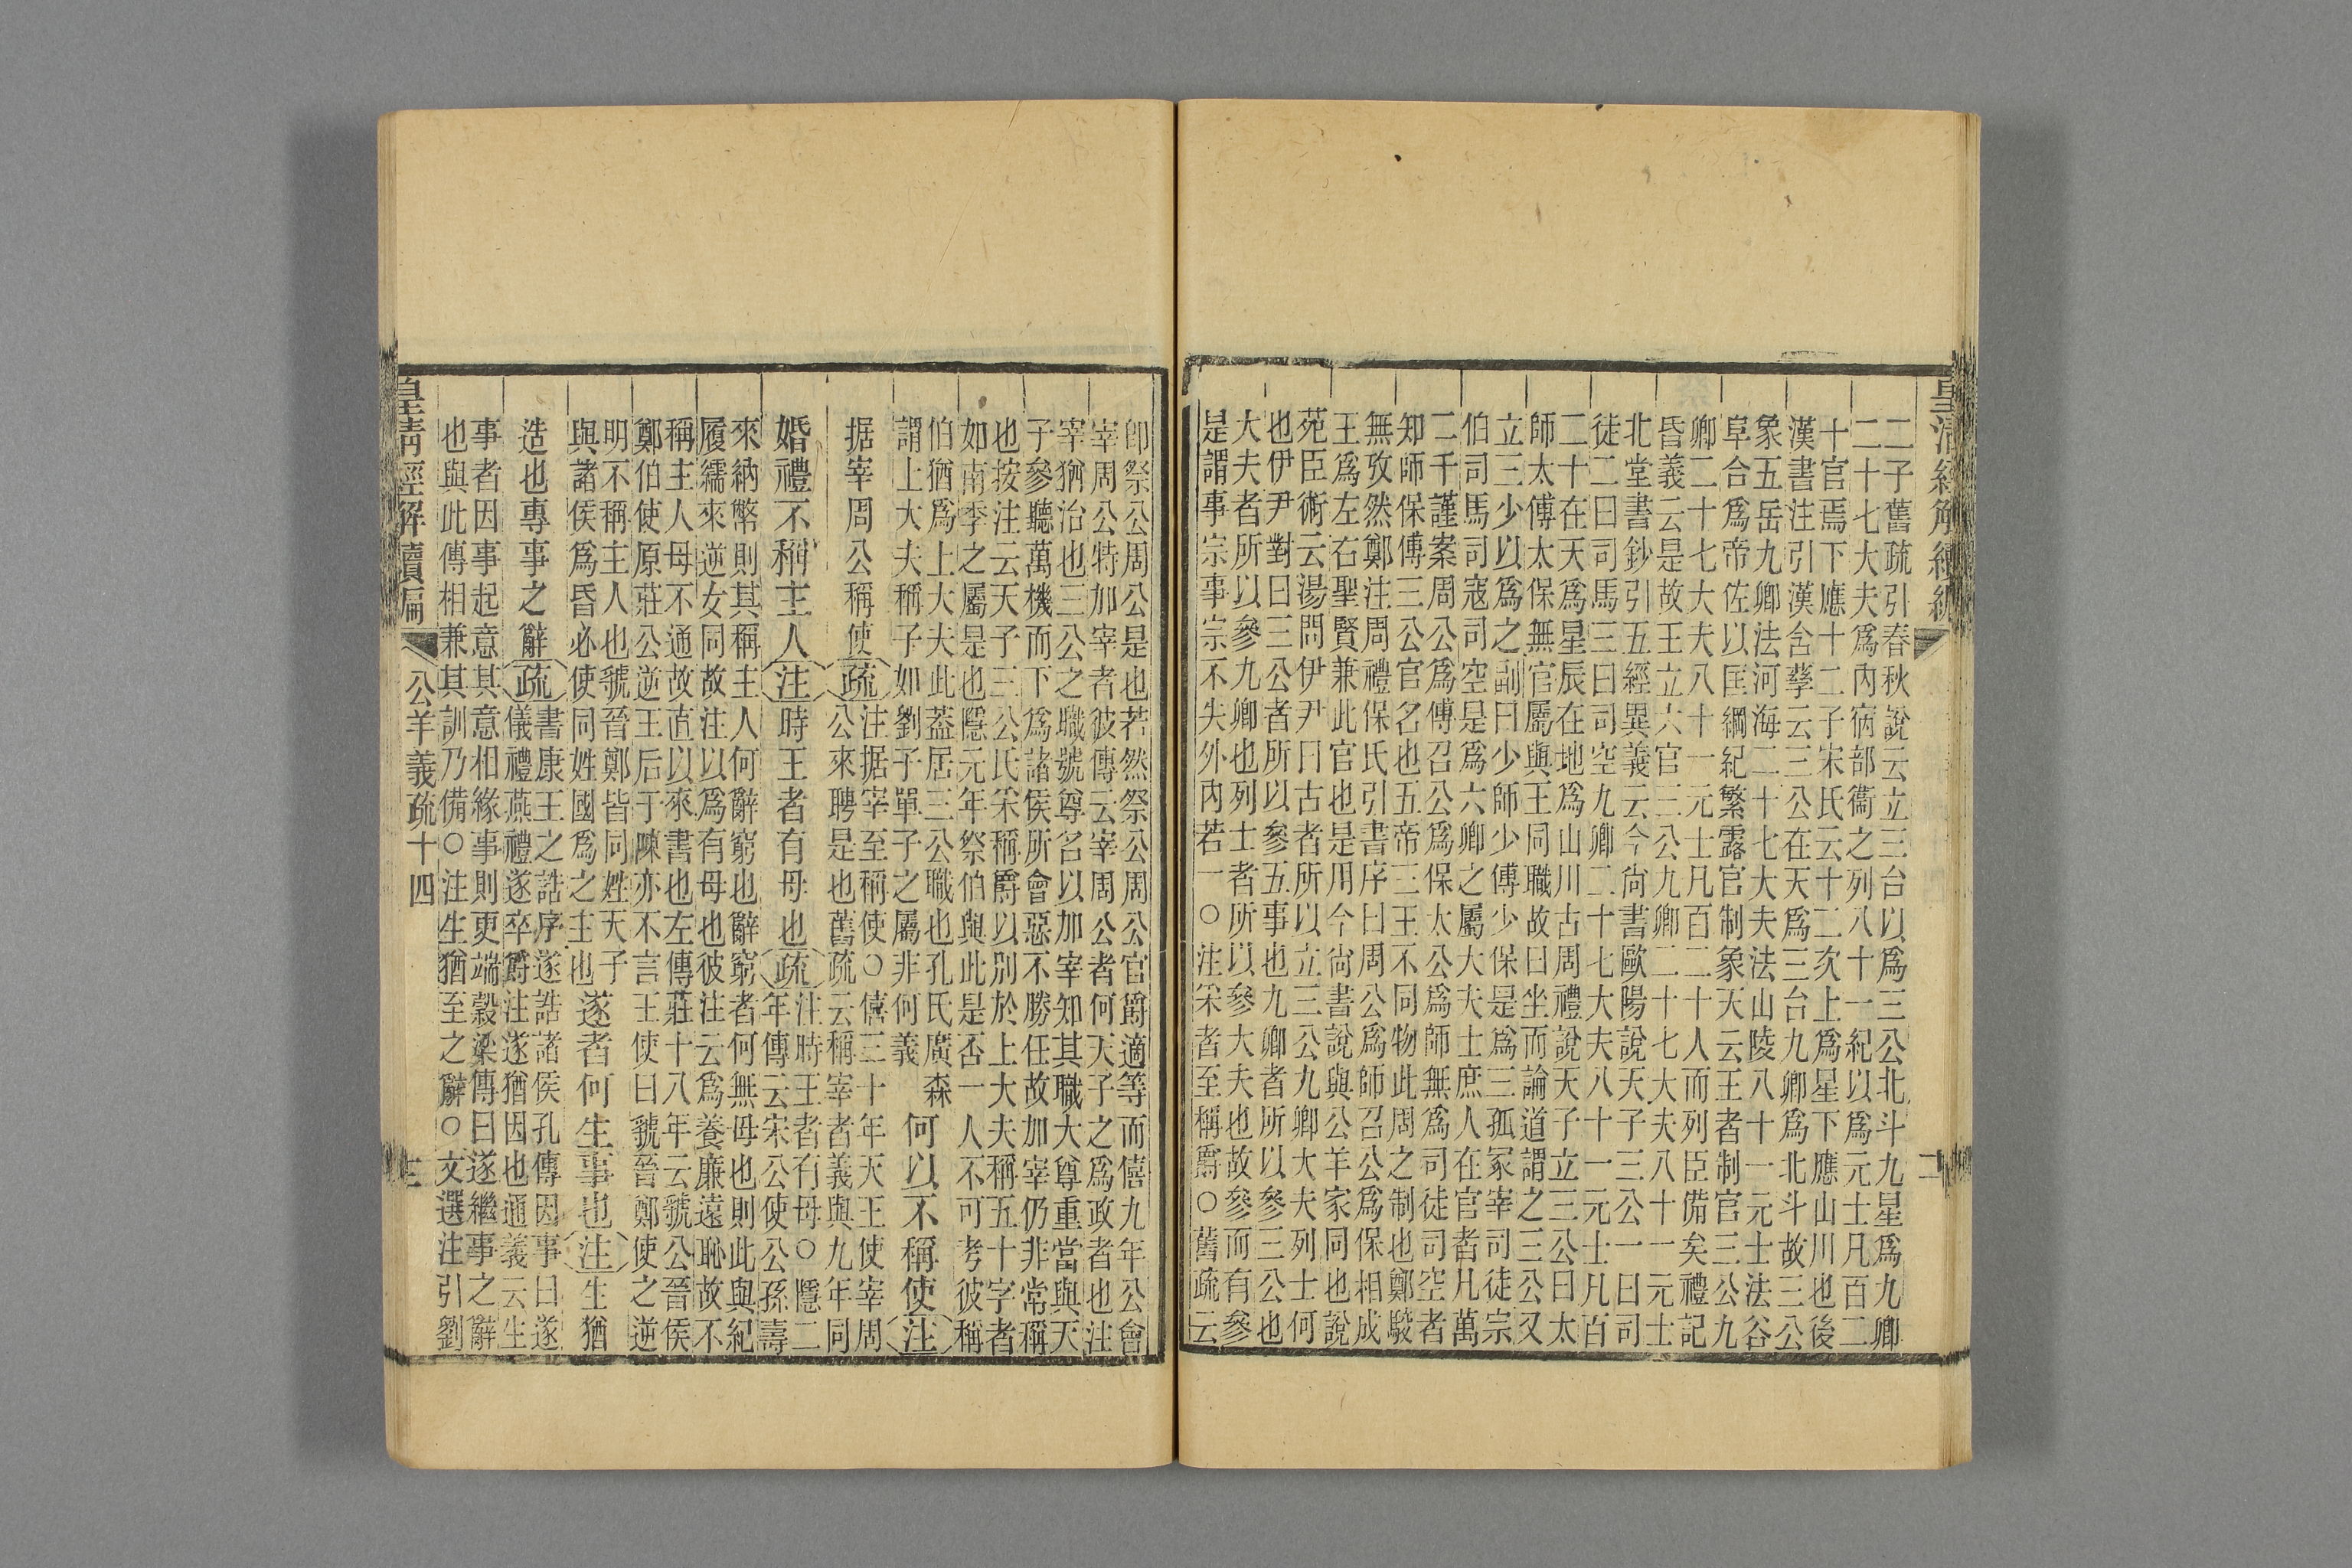 皇清經解續編
二
二子舊疏引春秋說云立三台以爲三公北斗九星爲九卿
二十七大夫爲內宿部衞之列八十一紀以爲元士凡百二
十官焉下應十二子宋氏云十二次上爲星下應山川也後
漢書注引漢含孳云三公在天爲三台九卿爲北斗故三公
象五岳九卿法河海二十七大夫法山陵八十一元士法谷
阜合爲帝佐以匡綱紀繁露官制象天云王者制官三公九
卿二十七大夫八十一元士凡百二十人而列臣備矣禮記
昏義云是故王立六官三公九卿二十七大夫八十一元士
北堂書鈔引五經異義云今尙書歐陽說天子三公一曰司
徒二曰司馬三曰司空九卿二十七大夫八十一元士凡百
二十在天爲星辰在地爲山川古周禮說天子立三公曰太
師太傅太保無官屬與王同職故曰坐而論道謂之三公又
立三少以爲之副曰少師少傅少保是爲三孤冢宰司徒宗
伯司馬司寇司空是爲六卿之屬大夫士庶人在官者凡萬
二千謹案周公爲傅召公爲保太公爲師無爲司徒司空者
知師保傅三公官名也五帝三王不同物此周之制也鄭駮
無攷然鄭注周禮保氏引書序曰周公爲師召公爲保相成
王爲左右聖賢兼此官也是用今尙書說與公羊家同也說
苑臣術云湯問伊尹曰古者所以立三公九卿大夫列士何
也伊尹對曰三公者所以參五事也九卿者所以參三公也
大夫者所以參九卿也列士者所以參大夫也故參而有參
是謂事宗事宗不失外內若一○注宋者至稱爵○舊疏云
卽祭公周公是也若然祭公周公官爵適等而僖九年公會
宰周公特加宰者彼傳云宰周公者何天子之爲政者也注
宰猶治也三公之職號尊名以加宰知其職大尊重當與天
子參聽萬機而下爲諸侯所會惡不勝任故加宰仍非常稱
也按注云天子三公氏采稱爵以別於上大夫稱五十字者
如南季之屬是也隱元年祭伯與此是否一人不可考彼稱
伯猶爲上大夫此蓋居三公職也孔氏廣森
謂上大夫稱子如劉子單子之屬非何義
何以不稱使注
据宰周公稱使疏注据宰至稱使○僖三十年天王使宰周
公來聘是也舊疏云稱宰者義與九年同
婚禮不稱主人注時王者有母也疏注時王者有母○隱二
年傳云宋公使公孫壽
來納幣則其稱主人何辭窮也辭窮者何無母也則此與紀
履繻來逆女同故注以爲有母也彼注云爲養廉遠恥故不
稱主人母不通故直以來書也左傳莊十八年云虢公晉侯
鄭伯使原莊公逆王后于陳亦不言王使曰虢晉鄭使之逆
明不稱主人也虢晉鄭皆同姓天子
與諸侯爲昏必使同姓國爲之主也
遂者何生事也注生猶
造也專事之辭疏書康王之誥序遂誥諸侯孔傳因事曰遂
儀禮燕禮遂卒爵注遂猶因也通義云生
事者因事起意其意相緣事則更端穀梁傳曰遂繼事之辭
也與此傳相兼其訓乃備○注生猶至之辭○文選注引劉
皇清經解續編
公羊義疏十四